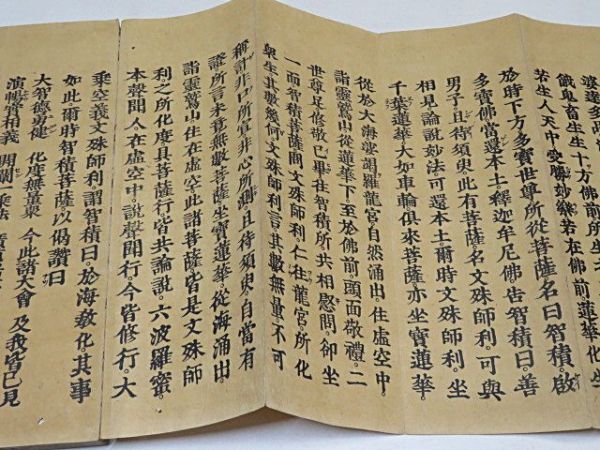 婆達多品
餓鬼畜生生十方佛前所生
若生人天中受勝妙樂若在佛前蓮華化生
於時下方多寶世尊所從菩薩名曰智積啟
多寶佛當還本土。釋迦牟尼佛告智積曰善
男子且待須臾此有菩薩名文殊師利。可與
相見論說妙法可還本土。爾時文殊師利。坐
千葉蓮華大如車輪俱來菩薩亦坐寶蓮華。
從於大海娑竭羅龍宮自然涌出。住虛空中。
詣靈鷲山從蓮華下。至於佛前頭面敬禮。二
世尊足修敬已畢往智積所共相慰問。卻坐
一面智積菩薩問文殊師利。仁往龍宮所化
眾生其數幾何。文殊師利言。其數無量不可
稱計非口所宣非心所測且待須臾自當有
證所言未竟無數菩薩坐寶蓮華。從海涌出。
詣靈鷲山住在虛空此諸菩薩。皆是文殊師
利之所化度。具菩薩行皆共論說。六波羅蜜
本聲聞人在虛空中。說聲聞行今皆修行。大
乘空義文殊師利。謂智積曰。於海教化其事
如此爾時智積菩薩以偈讚曰
大智德勇健　化度無量眾　今此諸大會　及我皆已見
演暢實相義　開闡一乘法